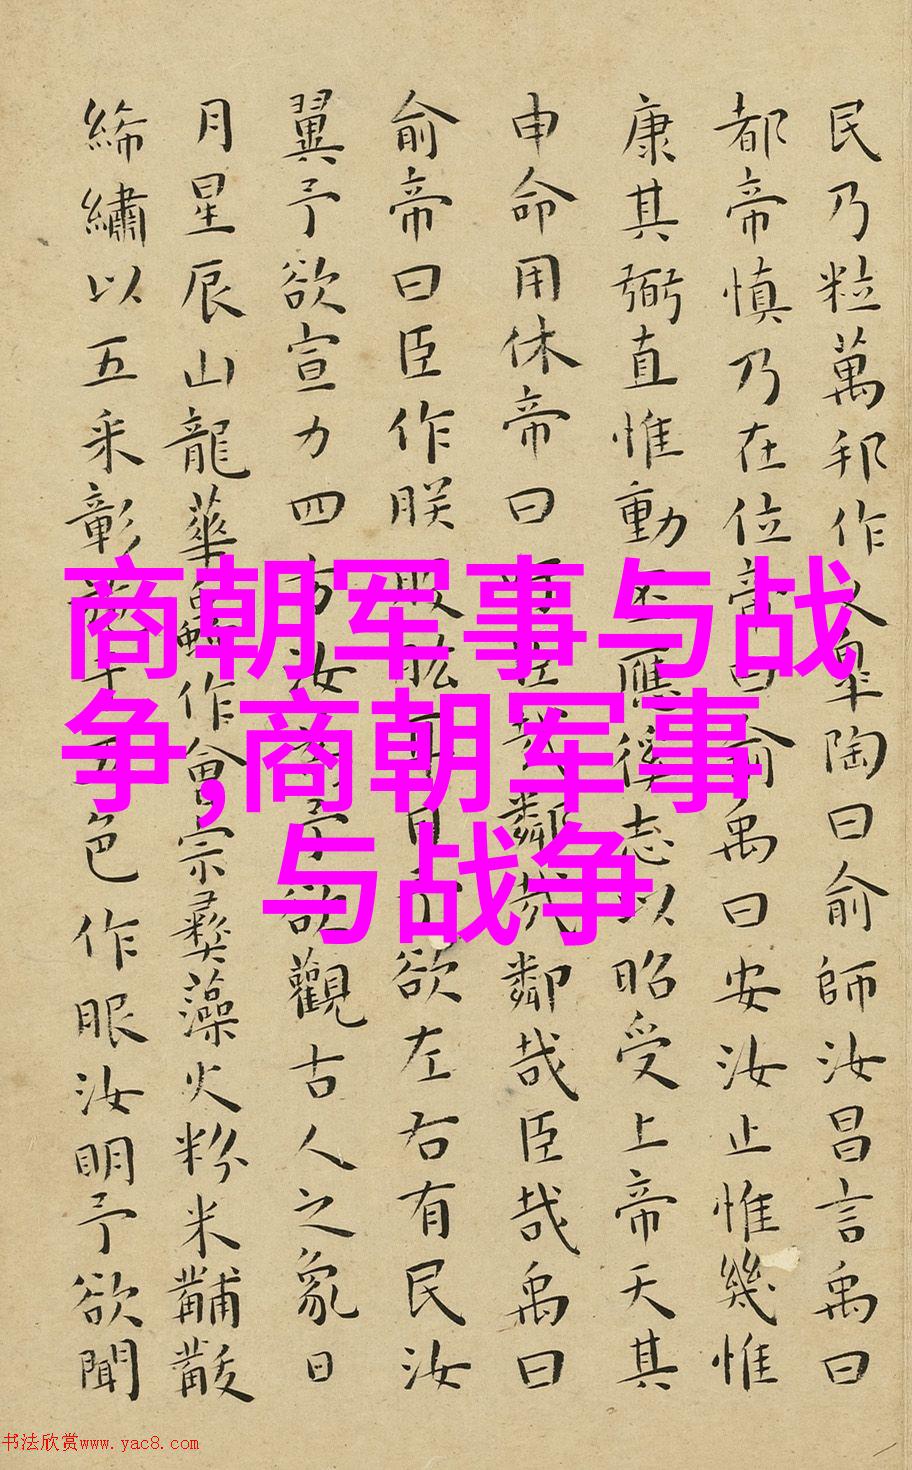 民乃粒萬邦作乂臯陶曰俞師汝昌言禹曰
都帝慎乃在位帝曰俞禹曰安汝止惟幾惟
康其弼直惟動丕應徯志以昭受上帝天其
申命用休帝曰臣哉鄰哉鄰哉臣哉禹曰
俞帝曰臣作朕股肱耳目予欲左右有民汝
翼予欲宣力四方汝予欲觀古人之象日
月星辰山龍華蟲作會宗彝藻火粉米黼黻
絺繡以五采彰于五色作服汝明予欲聞
商朝军事与战
争,商朝军事
与战争
书法欣赏www.yac8.com